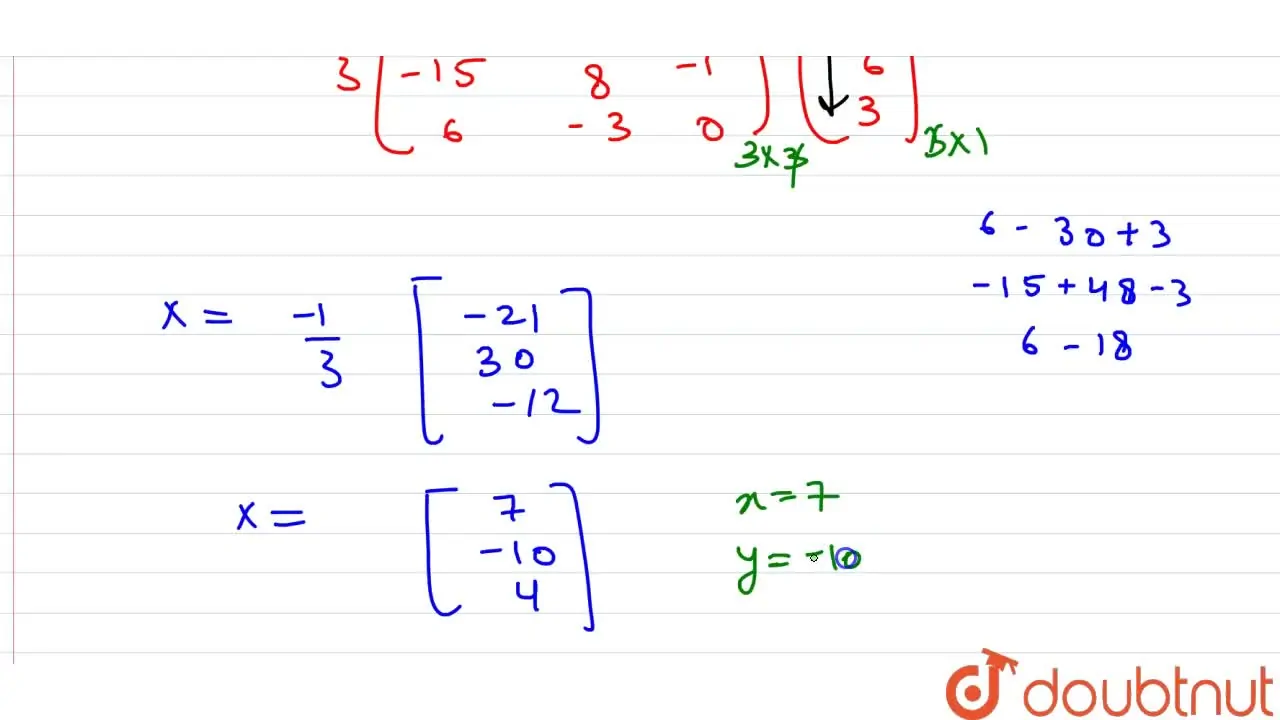 3 -15 8 -1 6
6 -3 0 3
3x3 3x1
6 - 30 + 3
-15 + 48 - 3
6 - 18
X = -1/3 [ -21
30
-12 ]
X = [ 7
-10
4 ]
x = 7
y = -10
doubtnut